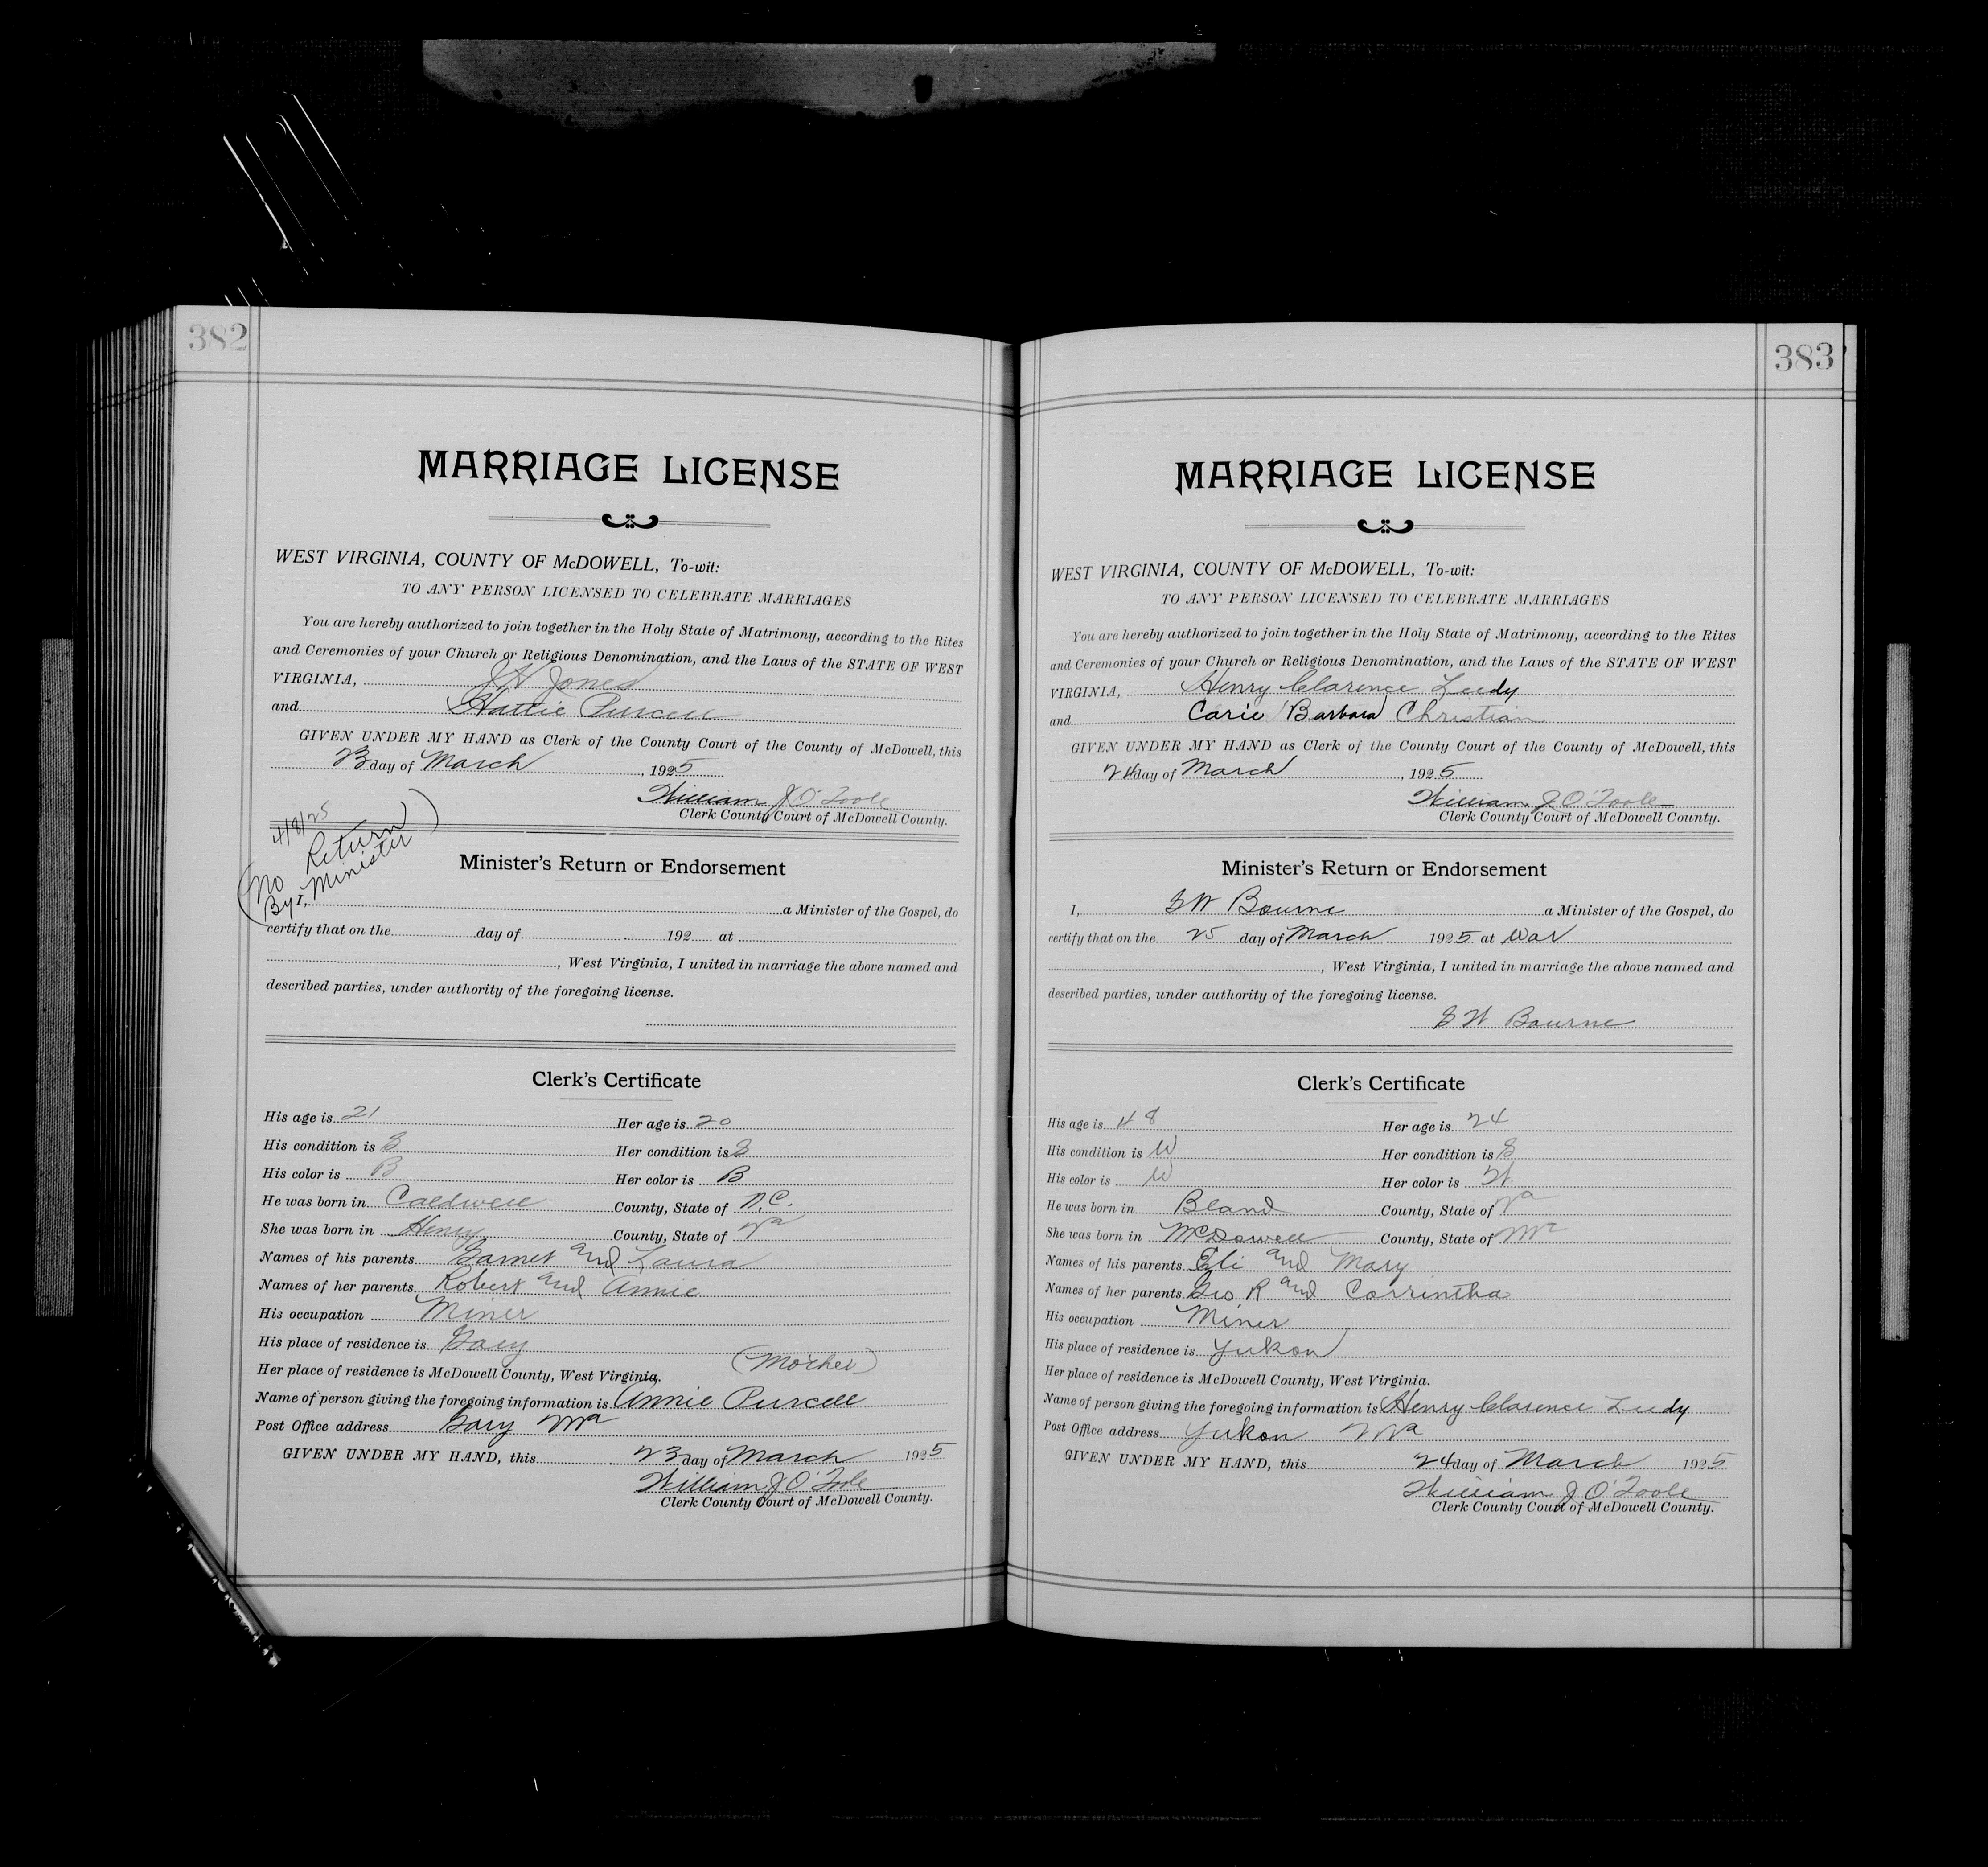 382
MARRIAGE LICENSE
WEST VIRGINIA, COUNTY OF McDOWELL, To-wit:
TO ANY PERSON LICENSED TO CELEBRATE MARRIAGES
You are hereby authorized to join together in the Holy State of Matrimony, according to the Rites
and Ceremonies of your Church or Religious Denomination, and the Laws of the STATE OF WEST
VIRGINIA, J H Jones
and Hattie Purcell
GIVEN UNDER MY HAND as Clerk of the County Court of the County of McDowell, this
23 day of March, 1925
William J O'Toole
Clerk County Court of McDowell County.
4/8/25
(No Return
By Minister)
Minister's Return or Endorsement
I, a Minister of the Gospel, do
certify that on the day of 192 at
, West Virginia, I united in marriage the above named and
described parties, under authority of the foregoing license.
Clerk's Certificate
His age is 21 Her age is 20
His condition is S Her condition is S
His color is B Her color is B
He was born in Caldwell County, State of N.C.
She was born in Henry County, State of Va
Names of his parents Garnet and Laura
Names of her parents Robert and Annie
His occupation Miner
His place of residence is Gary
Her place of residence is McDowell County, West Virginia. (Mother)
Name of person giving the foregoing information is Annie Purcell
Post Office address Gary WVa
GIVEN UNDER MY HAND, this 23 day of March 1925
William J O'Toole
Clerk County Court of McDowell County.
383
MARRIAGE LICENSE
WEST VIRGINIA, COUNTY OF McDOWELL, To-wit:
TO ANY PERSON LICENSED TO CELEBRATE MARRIAGES
You are hereby authorized to join together in the Holy State of Matrimony, according to the Rites
and Ceremonies of your Church or Religious Denomination, and the Laws of the STATE OF WEST
VIRGINIA, Henry Clarence Leedy
and Carie Barbara Christian
GIVEN UNDER MY HAND as Clerk of the County Court of the County of McDowell, this
24 day of March, 1925
William J O'Toole
Clerk County Court of McDowell County.
Minister's Return or Endorsement
I, S W Bourne a Minister of the Gospel, do
certify that on the 25 day of March 1925 at War
, West Virginia, I united in marriage the above named and
described parties, under authority of the foregoing license.
S W Bourne
Clerk's Certificate
His age is 48 Her age is 24
His condition is W Her condition is S
His color is W Her color is W
He was born in Bland County, State of Va
She was born in McDowell County, State of WVa
Names of his parents Eli and Mary
Names of her parents Geo R and Corrintha
His occupation Miner
His place of residence is Yukon
Her place of residence is McDowell County, West Virginia.
Name of person giving the foregoing information is Henry Clarence Leedy
Post Office address Yukon WVa
GIVEN UNDER MY HAND, this 24 day of March 1925
William J O'Toole
Clerk County Court of McDowell County.